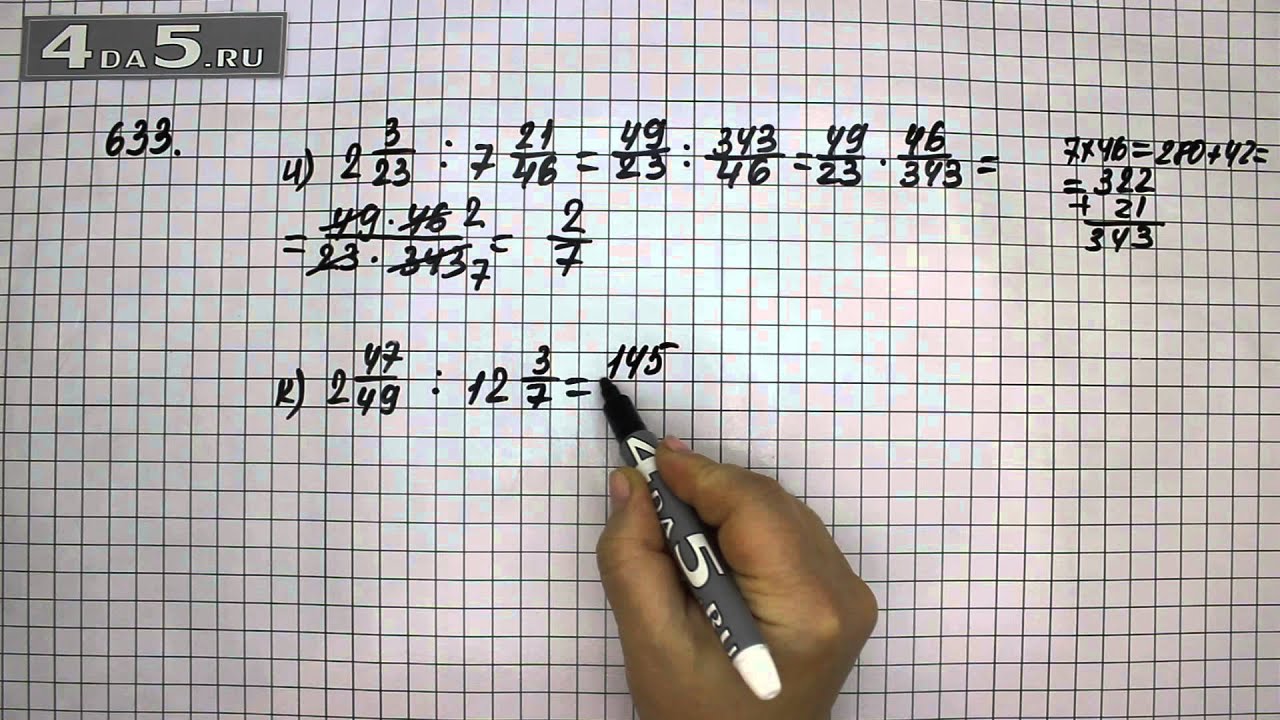 4DA5.RU
633.
и) 2 3/23 : 7 21/46 = 49/23 : 343/46 = 49/23 · 46/343 =
= 49 · 46 2 / 23 · 343 7 = 2/7
7×46=280+42=
= 322
+ 21
343
к) 2 47/49 : 12 3/7 = 145
4DA5.RU